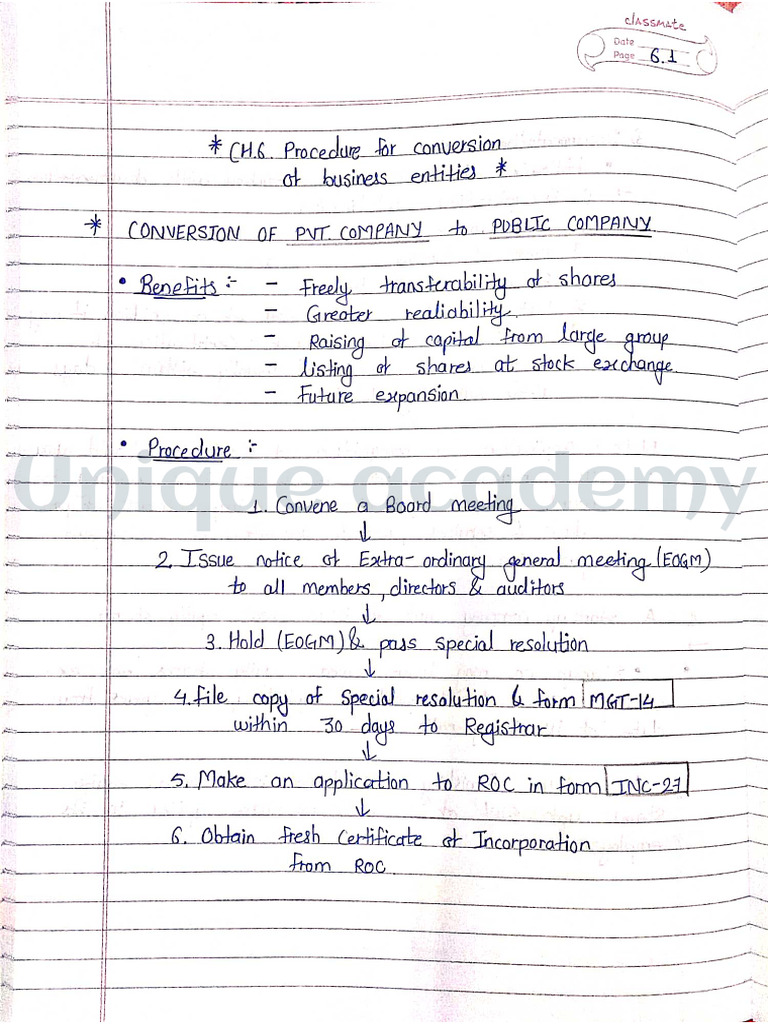 classmate
Date
Page 6.1
* CH.6. Procedure for conversion
of business entities *
* CONVERSION OF PVT. COMPANY to PUBLIC COMPANY
• Benefits :- - Freely transferability of shares
- Greater realiability.
- Raising of capital from large group
- Listing of shares at stock exchange.
- Future expansion.
• Procedure :-
Unique academy
1. Convene a Board meeting
↓
2. Issue notice of Extra-ordinary general meeting (EOGM)
to all members, directors & auditors
↓
3. Hold (EOGM) & pass special resolution
↓
4. File copy of special resolution & form MGT-14
within 30 days to Registrar
↓
5. Make an application to ROC in form INC-27
↓
6. Obtain fresh Certificate of Incorporation
from ROC.